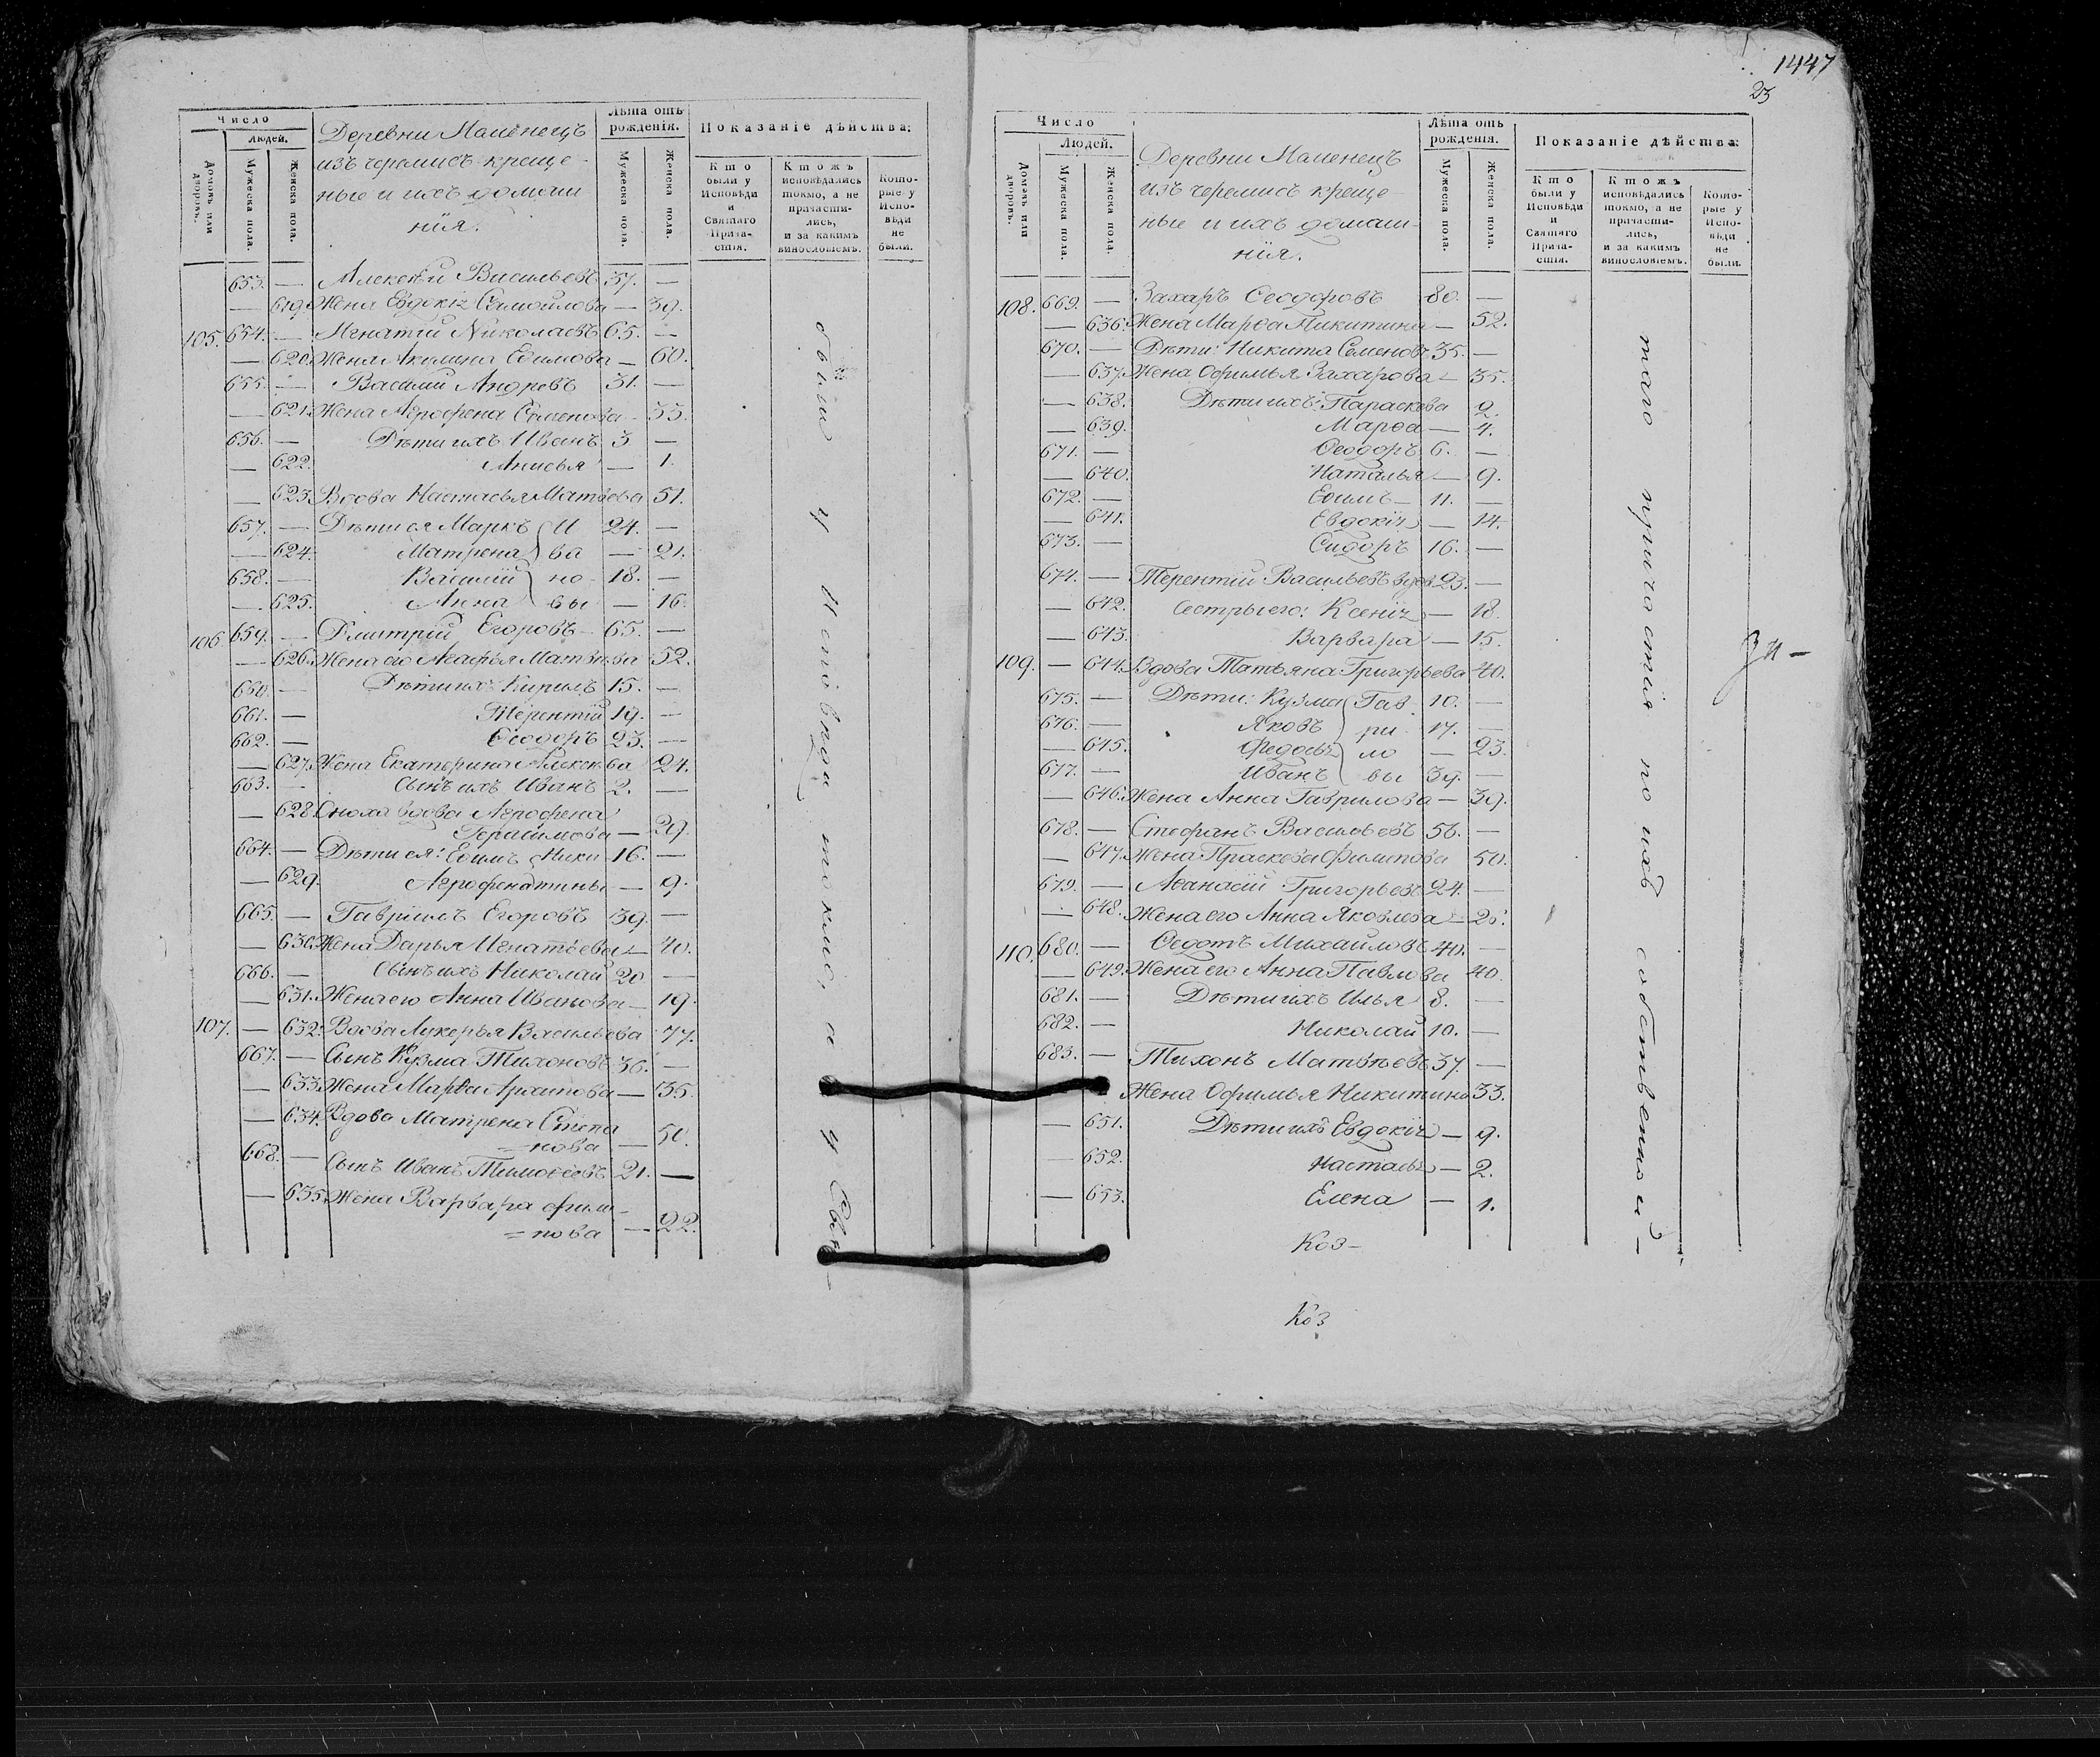 1447
23
Число
Людей.
Домовъ или дворовъ.
Мужеска пола.
Женска пола.
Деревни Маменецъ
изъ черемисъ креще-
ные и ихъ домаш
нія.
Лѣта отъ рожденія.
Мужеска пола.
Женска пола.
Показаніе дѣйства:
Кто были у Исповѣди и Святаго Прича-стія.
Ктожъ исповѣдались токмо, а не причасти-лись, и за какимъ винословіемъ.
Кото-рые у Испо-вѣди не были.
653. — Алексѣй Васильевъ 37. —
— 619. Жена Евдокія Самойлова — 39.
105. 654. — Игнатій Николаевъ 65. —
— 620. Жена Акилина Еѳимова — 60.
655. — Василій Андреевъ 31. —
— 621. Жена Агрофена Семенова — 33.
656. — Дѣти ихъ Иванъ 3 —
— 622. Анисья — 1.
— 623. Вдова Настасья Матвѣева 51.
657. — Дѣти ея Маркъ И 24. —
— 624. Матрена ва — 21.
658. — Василій но 18. —
— 625. Анна вы — 16.
106. 659. — Дмитрій Егоровъ — 65. —
— 626. Жена его Агафья Матвѣева 52.
660. — Дѣти ихъ Кирилъ 15. —
661. — Терентій 19. —
662. — Ѳеодоръ 23. —
— 627. Жена Екатерина Алексѣева 24.
663. — Сынъ ихъ Иванъ 2. —
— 628. Сноха вдова Агрофена
Герасимова — 29.
664. — Дѣти ея: Еѳимъ Ники 16. —
— 629. Агрофена тины — 9.
665. — Гаврилъ Егоровъ 39. —
— 630. Жена Дарья Игнатьева — 40.
666. — Сынъ ихъ Николай 20 —
— 631. Жена его Анна Иванова — 19.
107. — 632. Вдова Лукерья Васильева 77.
667. — Сынъ Кузма Тихоновъ 36. —
— 633. Жена Марѳа Архипова — 35.
— 634. Вдова Матрена Степа
=нова — 50.
668. — Сынъ Иванъ Тимоѳеевъ 21. —
— 635. Жена Варвара Фили-
=пова — 22.
были у Исповѣди токмо, а у Свя-
Число
Людей.
Домовъ или дворовъ.
Мужеска пола.
Женска пола.
Деревни Маменецъ
изъ черемисъ креще-
ные и ихъ домаш-
нія.
Лѣта отъ рожденія.
Мужеска пола.
Женска пола.
Показаніе дѣйства:
Кто были у Исповѣди и Святаго Прича-стія.
Ктожъ исповѣдались токмо, а не причасти-лись, и за какимъ винословіемъ.
Кото-рые у Испо-вѣди не были.
108. 669. — Захаръ Ѳеодоровъ 80. —
— 636. Жена Марѳа Никитина — 52.
670. — Дѣти: Никита Семеновъ 35. —
— 637. Жена Офимья Захарова — 35.
— 638. Дѣти ихъ: Параскева 2.
— 639. Марѳа — 4.
671. — Ѳеодоръ 6. —
— 640. Наталья — 9.
672. — Еѳимъ — 11. —
— 641. Евдокія — 14.
673. — Сидоръ 16. —
674. — Терентій Васильевъ вдов 23. —
— 642. Сестры его: Ксенія — 18.
— 643. Варвара — 15.
109. — 644. Вдова Татьяна Григорьева 40.
675. — Дѣти: Кузма Гав 10. —
676. — Яковъ ри 17. —
— 645. Федосья ло — 23.
677. — Иванъ вы 39. —
— 646. Жена Анна Гаврилова — 39.
678. — Стефанъ Васильевъ 56. —
— 647. Жена Праскева Филипова 50.
679. — Аѳанасій Григорьевъ 24. —
— 648. Жена его Анна Яковлева — 26.
110. 680. — Ѳедотъ Михайловъ 40. —
— 649. Жена его Анна Павлова 40
681. — Дѣти ихъ Илья 8. —
682. — Николай 10. —
683. — Тихонъ Матвѣевъ 37. —
Жена Офимья Никитина 33.
— 651. Дѣти ихъ Евдокія — 9.
— 652. Настасья — 2.
— 653. Елена — 1.
Коз-
Коз
таго причастія по ихъ собственной —